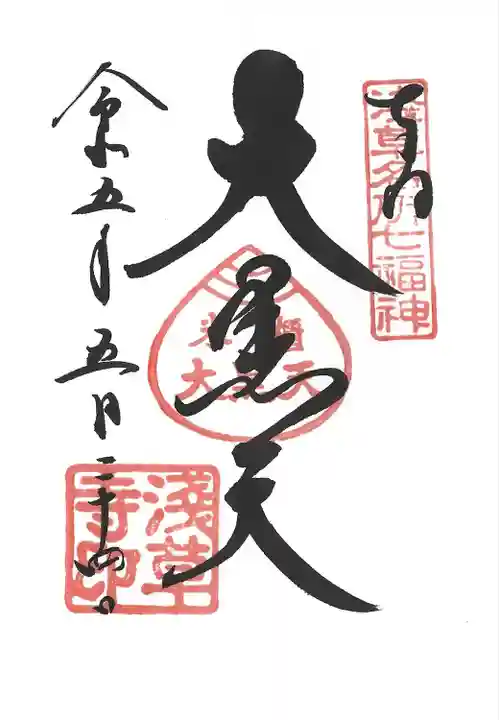 奉拝
浅草名所七福神
大黒天
令和五年五月二十四日
淺草
寺印